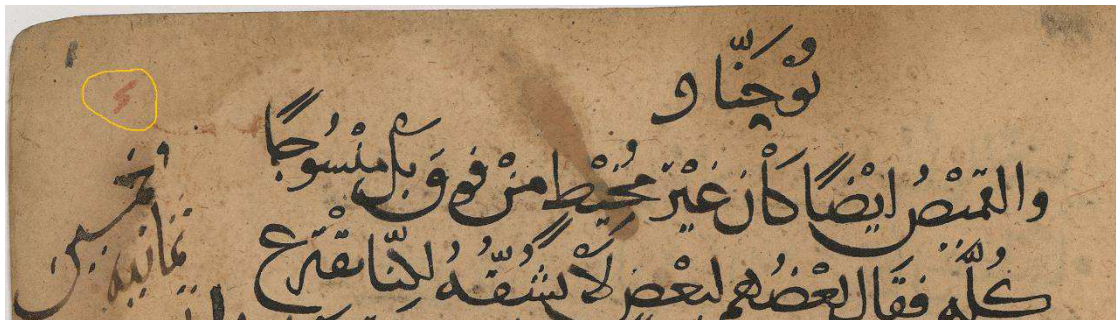 يُوْحَنَّا و
والقميْصُ ايْضًا كَاْن غَيْرَ مُخيْطٍ منْ فوق بَلْ منْسُوجًا
كُلُّه فقَال بَعْضُهُم لبعْضٍ لاْ نَشُقّهُ لكِنّا نقْترع
وخمسين
ثمانية